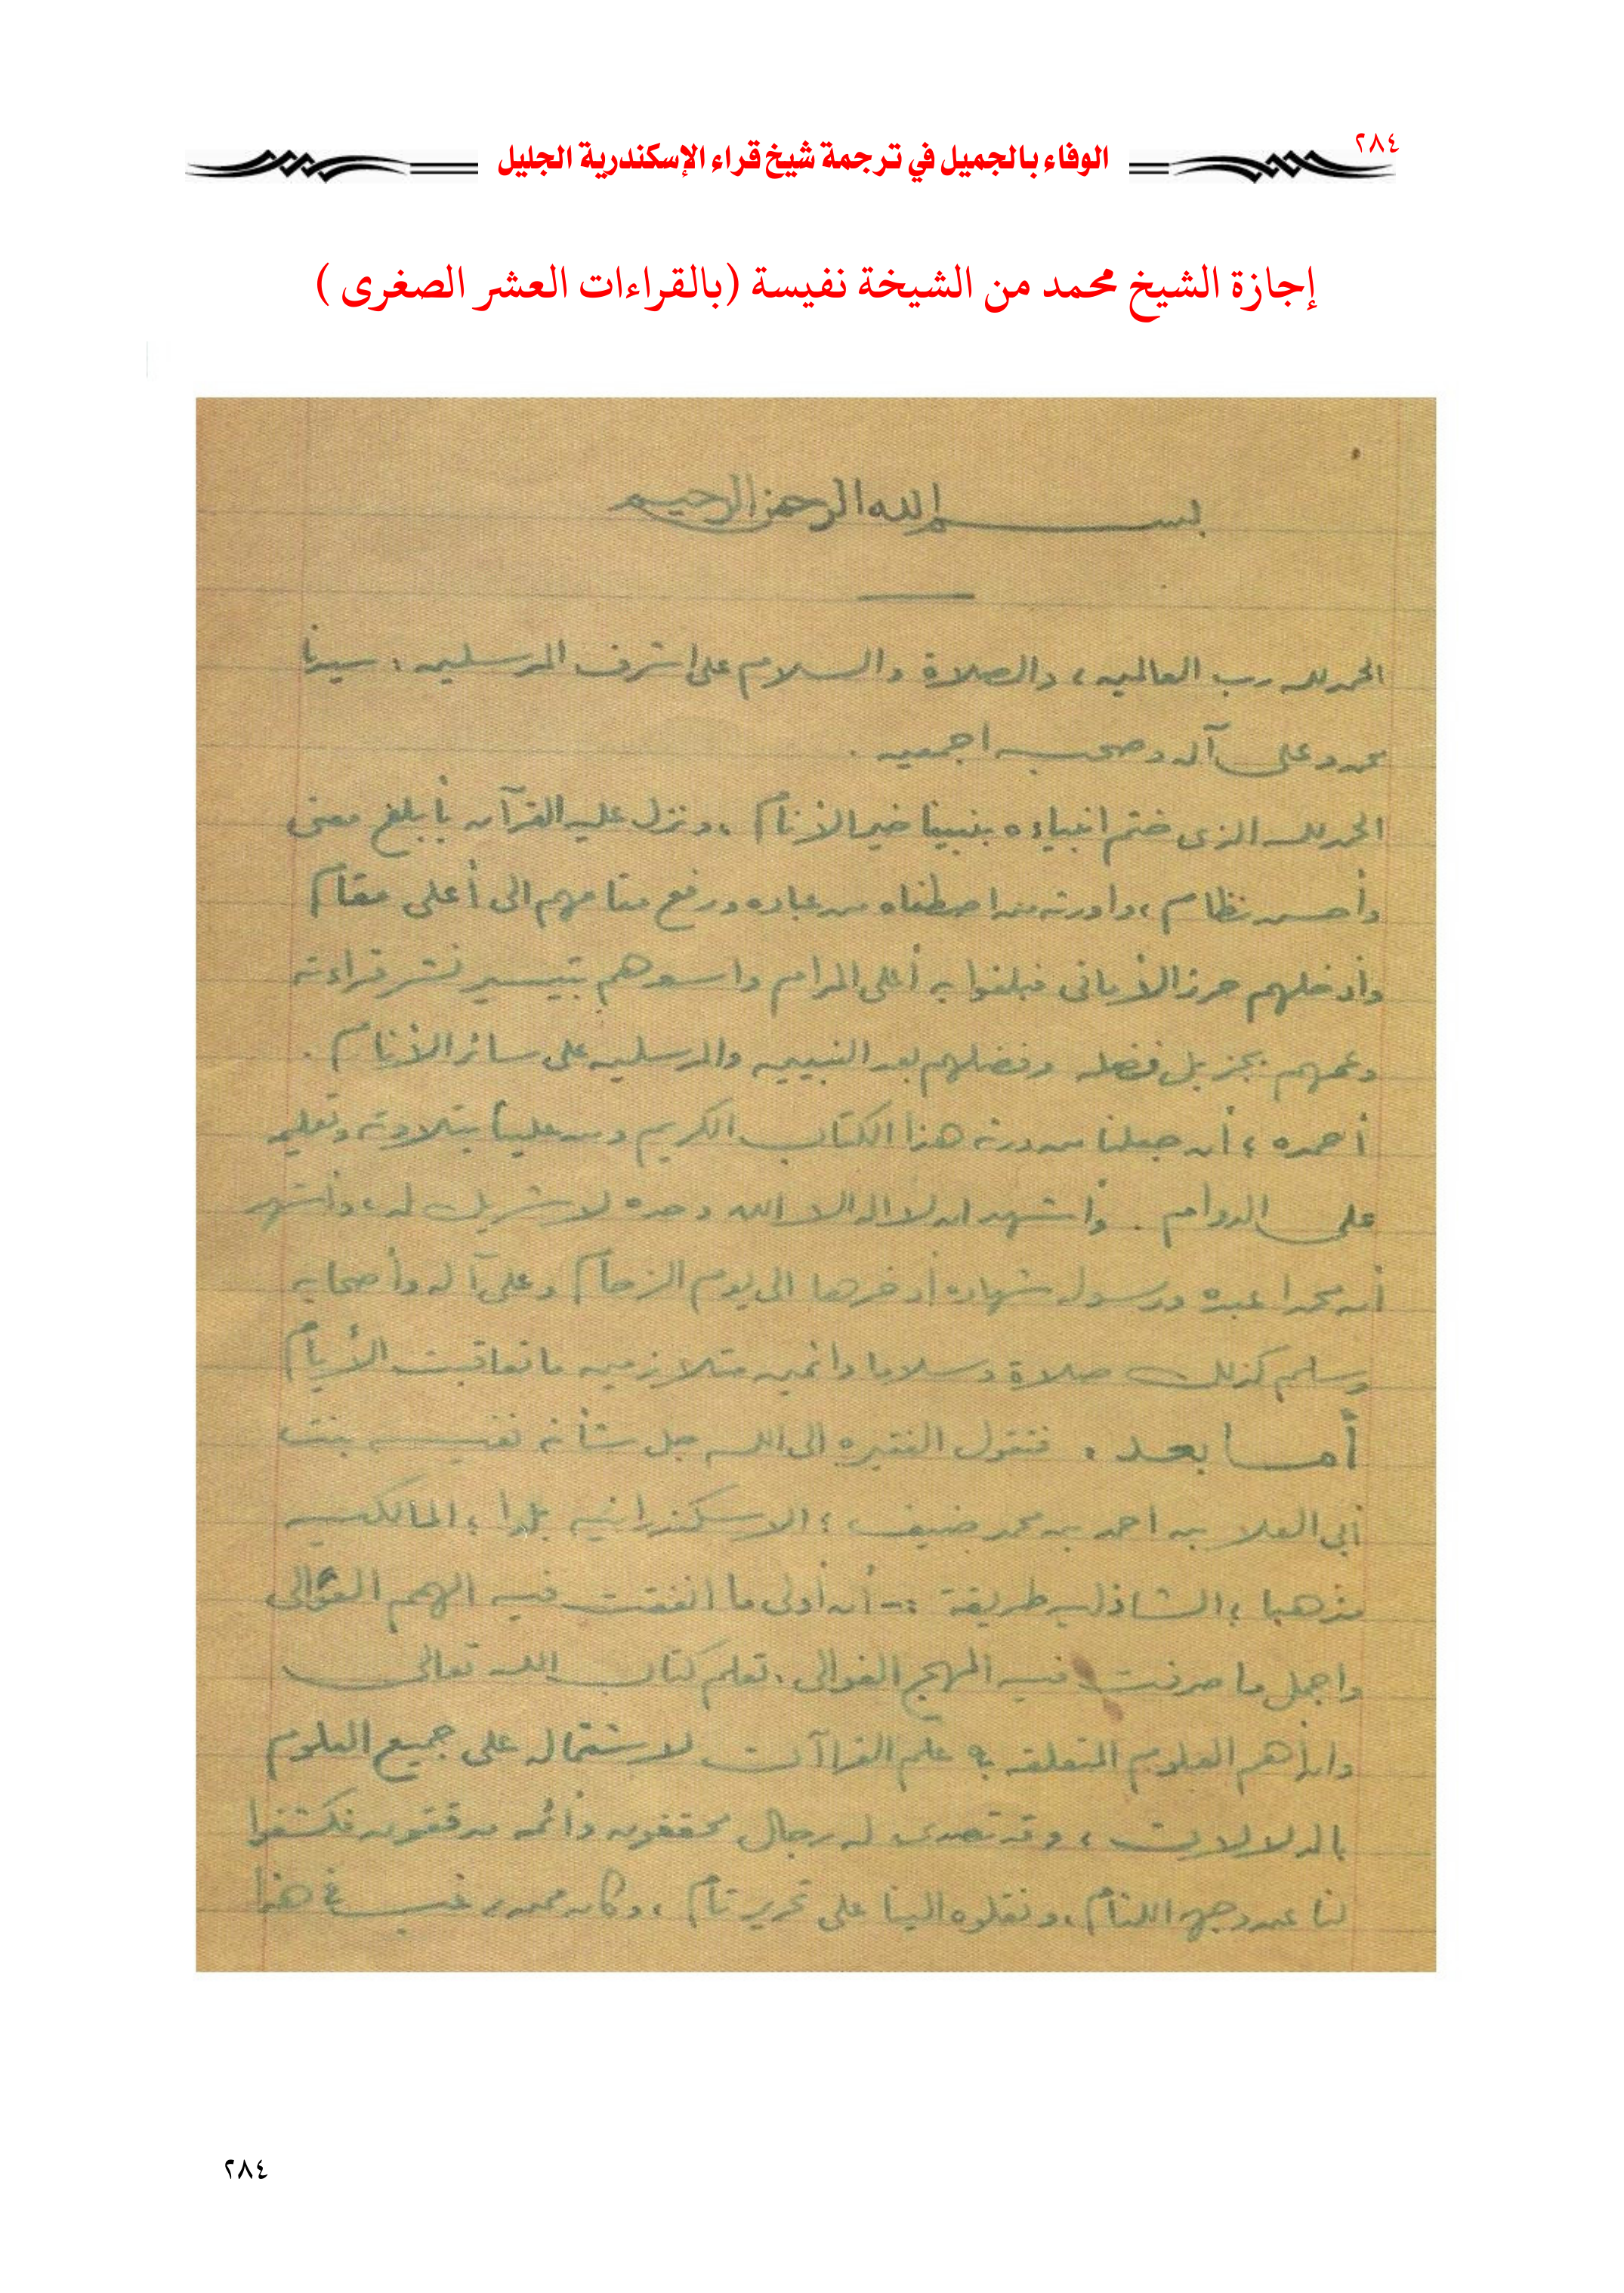 ٢٨٤
الوفاء بالجميل في ترجمة شيخ قراء الإسكندرية الجليل
إجازة الشيخ محمد من الشيخة نفيسة (بالقراءات العشر الصغرى )
بسم الله الرحمن الرحيم
الحمد لله رب العالمين، والصلاة والسلام على اشرف المرسلين، سيدنا
محمد وعلى آله وصحبه اجمعين .
الحمد لله الذى ختم انبياءه بنبينا خير الأنام ، ونزل عليه القرآن بأبلغ معنى
وأحسن نظام ، واورثه من اصطفاه من عباده ورفع مقامهم الى أعلى مقام
وأدخلهم حرز الأمانى فبلغوا به أعلى المرام بتيسير نشر قراءته
وعمهم بجزيل فضله وفضلهم بعد النبيين والمرسلين على سائر الأنام .
أحمده ، أن جعلنا من ورثة هذا الكتاب الكريم ومن علينا بتلاوته وتعليمه
على الدوام . وأشهد ان لا اله الا الله وحده لا شريك له ، وأشهد
أن محمدا عبده ورسوله شهاده أدخرها الى يوم الزحام وعلى آله وأصحابه
وسلم كذلك صلاة وسلاما دائمين متلازمين ما تعاقبت الأيام
أما بعد ، فتقول الفقيره الى الله جل شأنه نفيسه بنت
أبى العلا بن احمد بن محمد ضيف ، الاسكندرانيه بلدا ، المالكيه
مذهبا ، الشاذليه طريقة :- أن أولى ما انفقت فيه الهمم العوالى
واجمل ما صرفت فيه المهج الغوالى ، تعلم كتاب الله تعالى
وان أهم العلوم المتعلقه به علم القراآت لاشتماله على جميع العلوم
بالدلالات ، وقد تصدى له رجال محققون وأئمه مدققون فكشفوا
لنا عن وجهه اللثام ، ونقلوه الينا على تحرير تام ، وكان ممن رغب فى هذا
٢٨٤